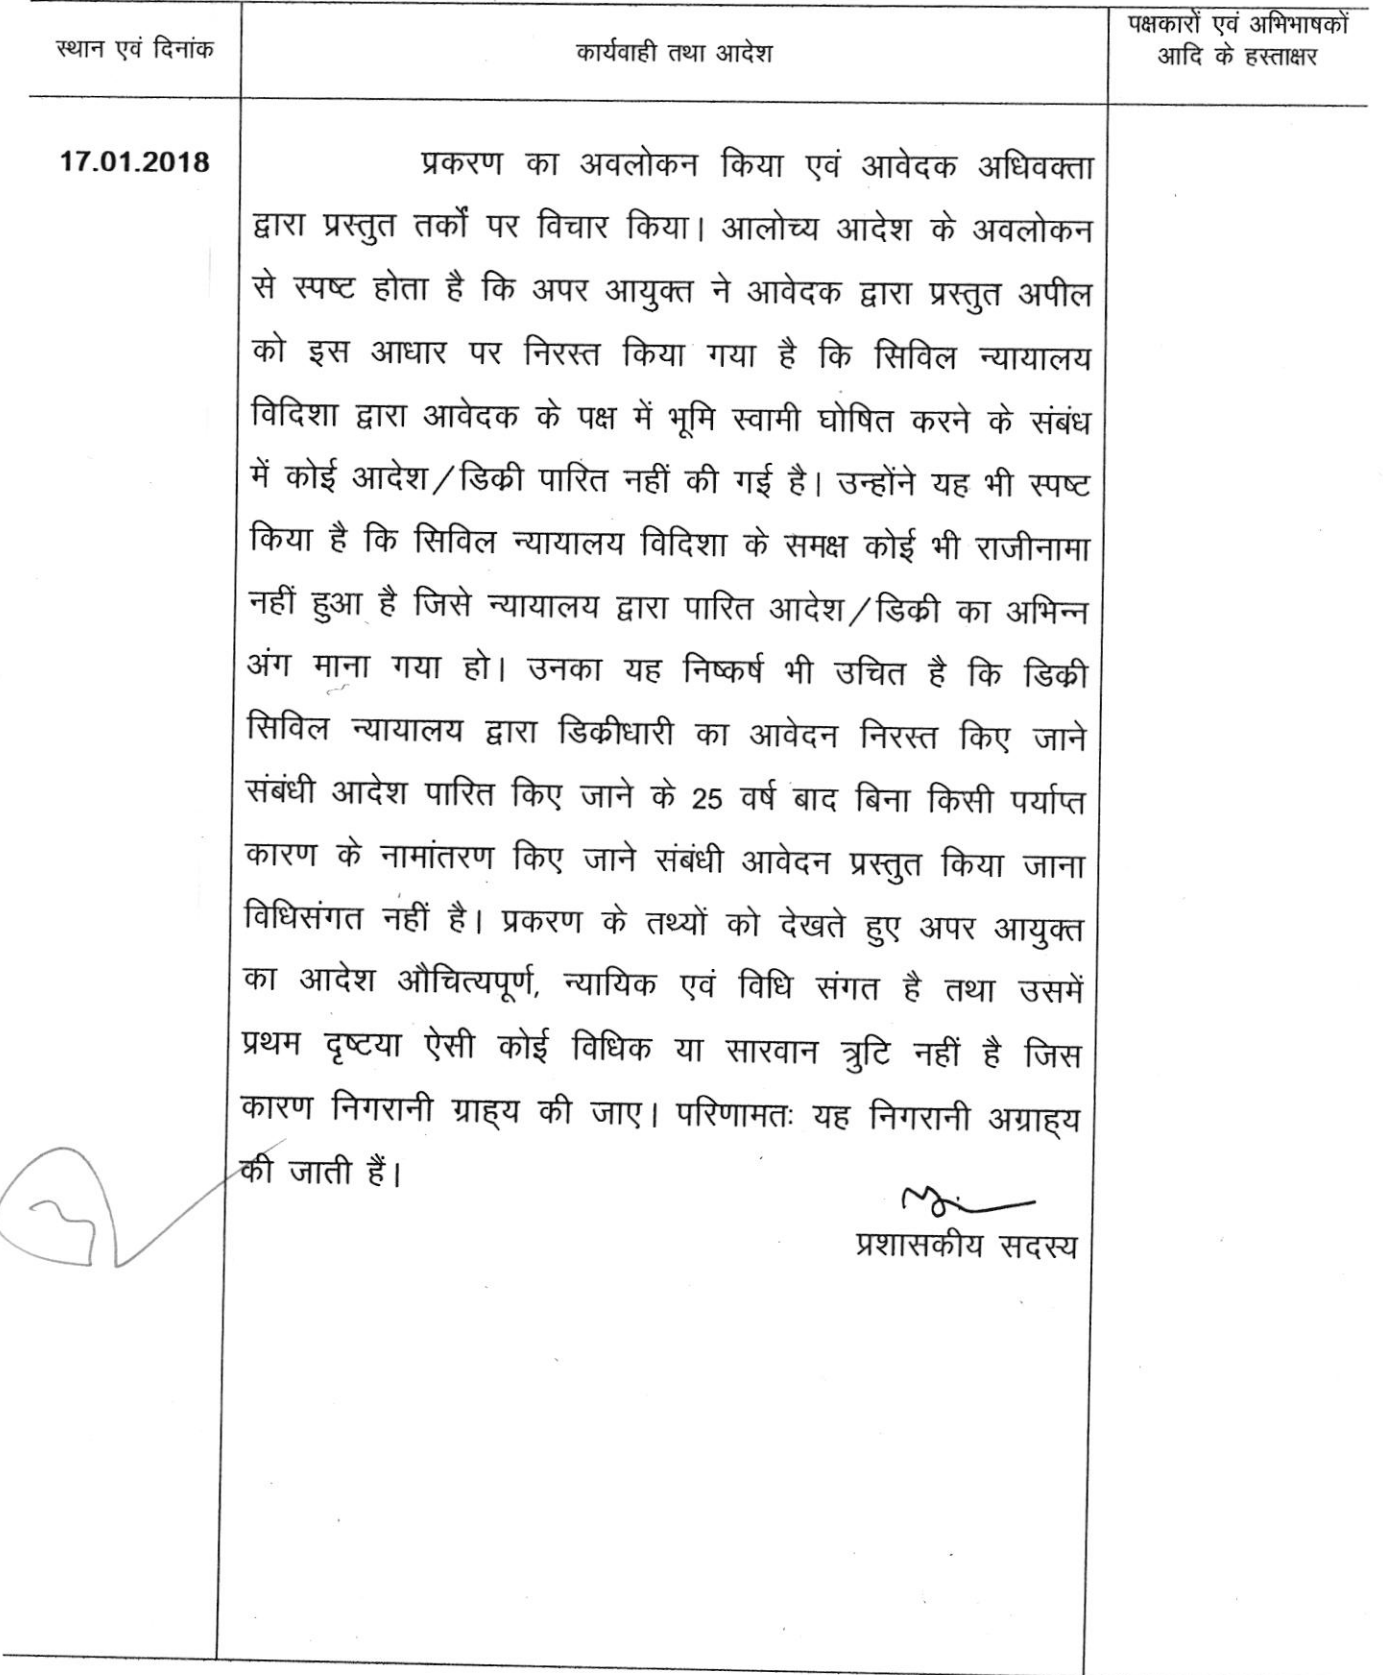 स्थान एवं दिनांक
कार्यवाही तथा आदेश
पक्षकारों एवं अभिभाषकों
आदि के हस्ताक्षर
17.01.2018
प्रकरण का अवलोकन किया एवं आवेदक अधिवक्ता
द्वारा प्रस्तुत तर्कों पर विचार किया। आलोच्य आदेश के अवलोकन
से स्पष्ट होता है कि अपर आयुक्त ने आवेदक द्वारा प्रस्तुत अपील
को इस आधार पर निरस्त किया गया है कि सिविल न्यायालय
विदिशा द्वारा आवेदक के पक्ष में भूमि स्वामी घोषित करने के संबंध
में कोई आदेश/डिक्री पारित नहीं की गई है। उन्होंने यह भी स्पष्ट
किया है कि सिविल न्यायालय विदिशा के समक्ष कोई भी राजीनामा
नहीं हुआ है जिसे न्यायालय द्वारा पारित आदेश/डिक्री का अभिन्न
अंग माना गया हो। उनका यह निष्कर्ष भी उचित है कि डिक्री
सिविल न्यायालय द्वारा डिक्रीधारी का आवेदन निरस्त किए जाने
संबंधी आदेश पारित किए जाने के 25 वर्ष बाद बिना किसी पर्याप्त
कारण के नामांतरण किए जाने संबंधी आवेदन प्रस्तुत किया जाना
विधिसंगत नहीं है। प्रकरण के तथ्यों को देखते हुए अपर आयुक्त
का आदेश औचित्यपूर्ण, न्यायिक एवं विधि संगत है तथा उसमें
प्रथम दृष्टया ऐसी कोई विधिक या सारवान त्रुटि नहीं है जिस
कारण निगरानी ग्राह्य की जाए। परिणामतः यह निगरानी अग्राह्य
की जाती हैं।
प्रशासकीय सदस्य